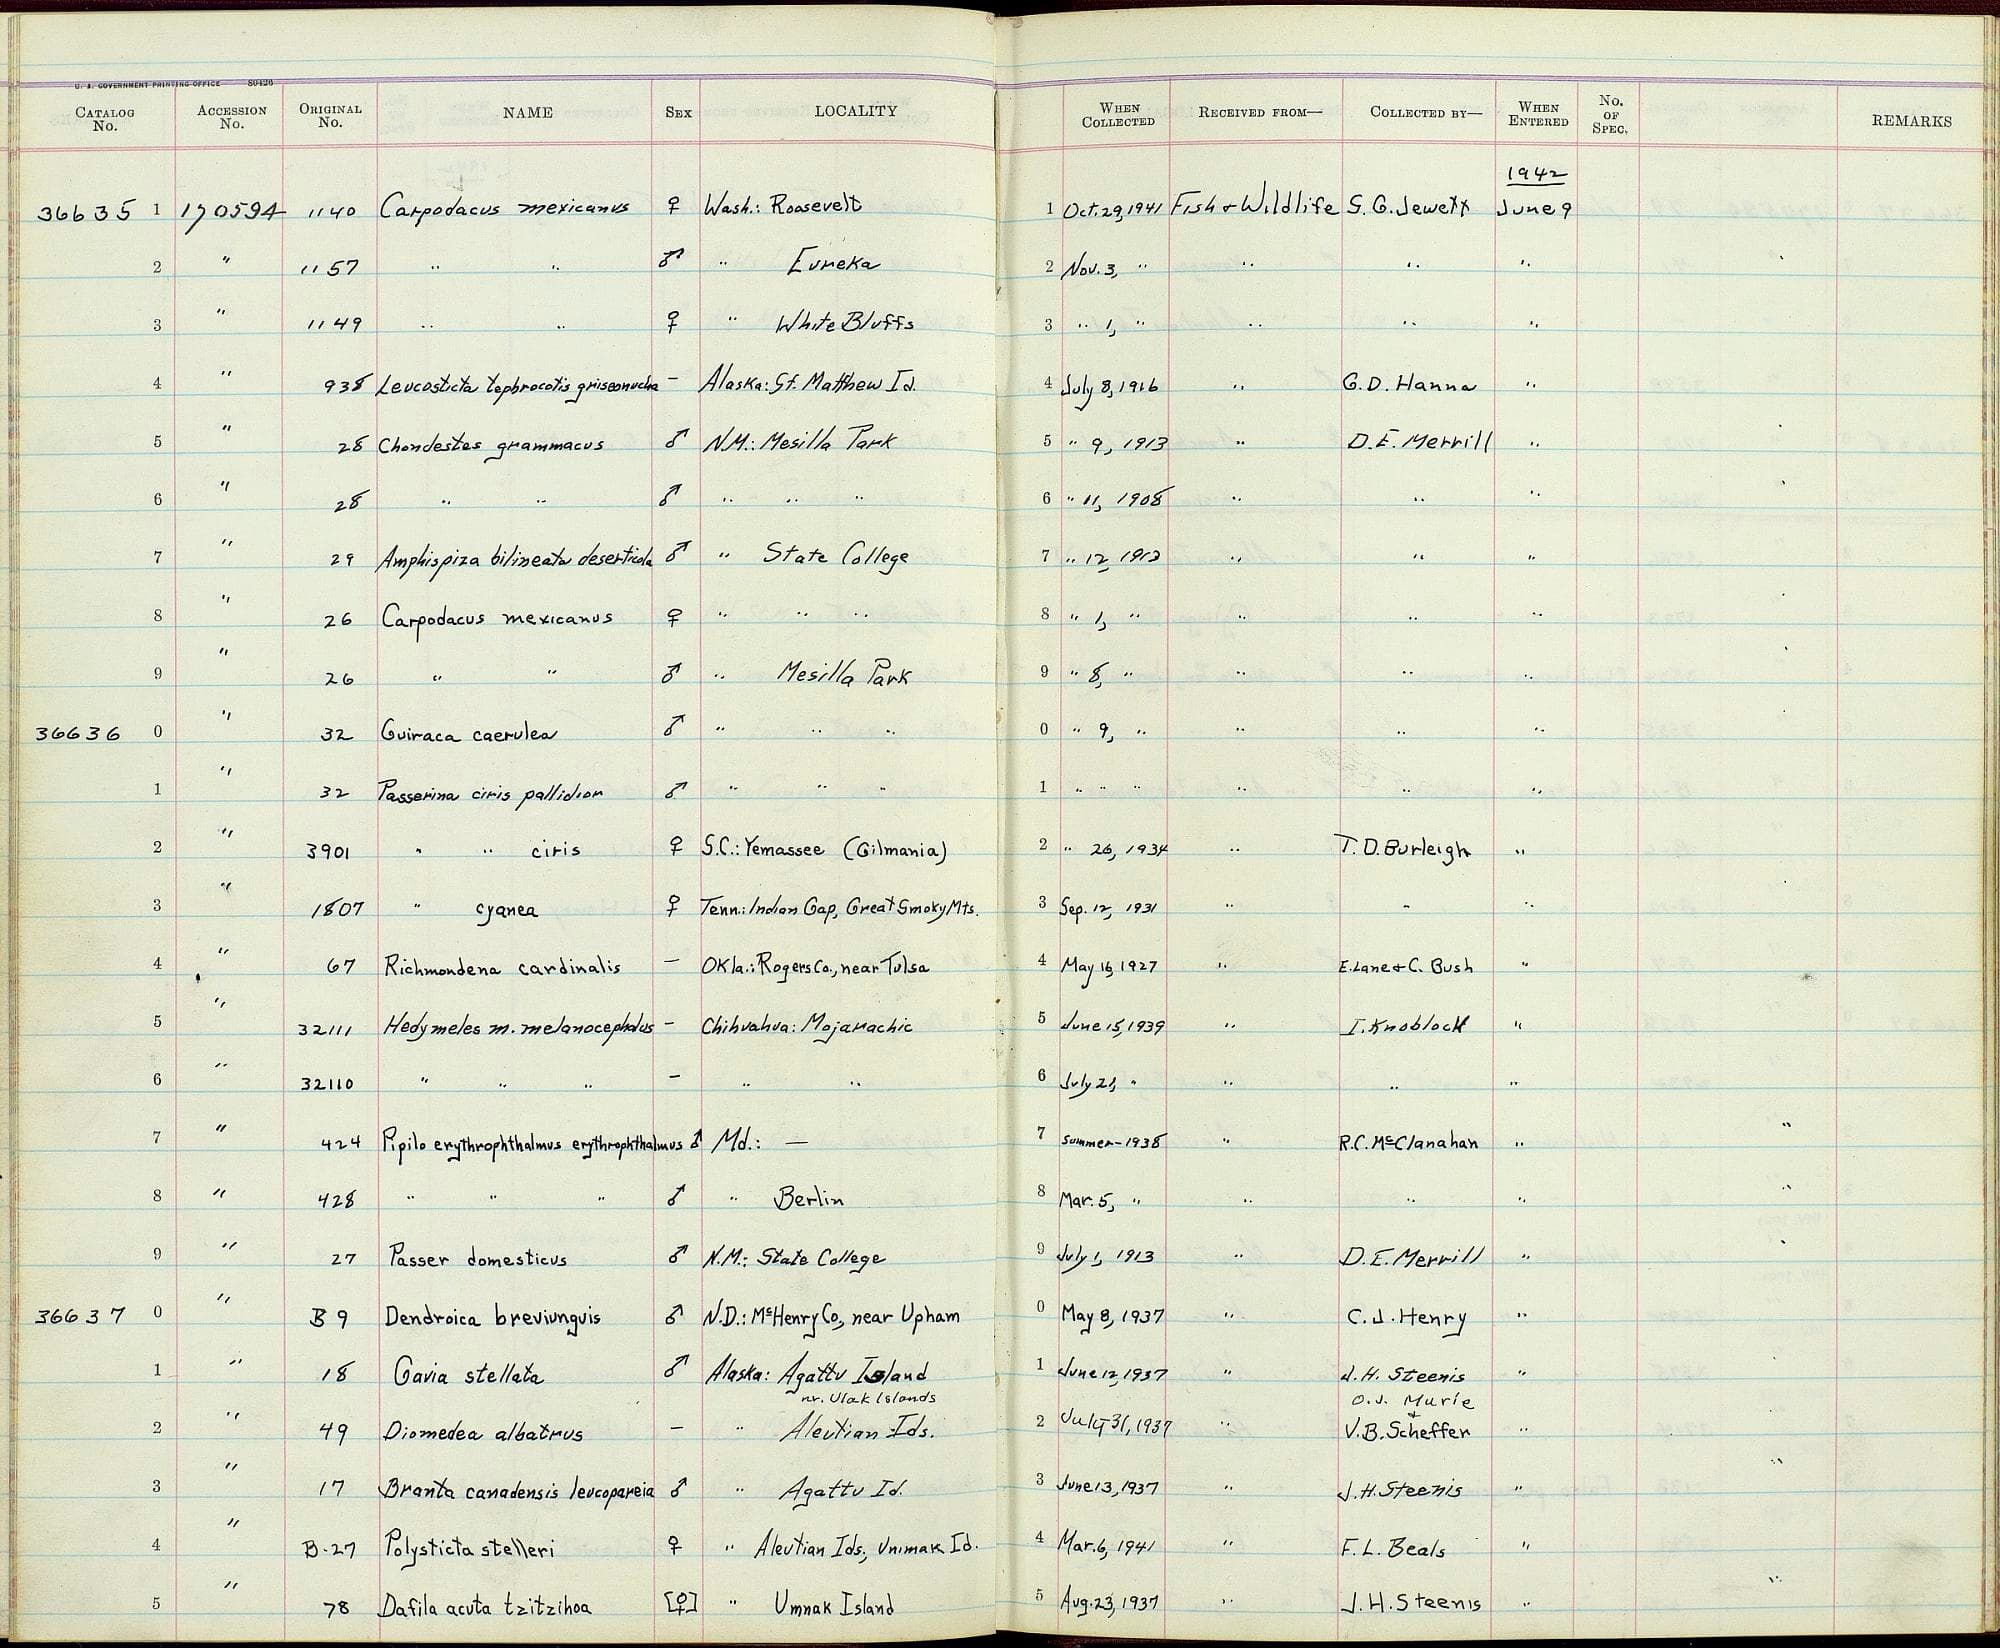 U. S. GOVERNMENT PRINTING OFFICE 80426
CATALOG No. ACCESSION No. ORIGINAL No. NAME SEX LOCALITY WHEN COLLECTED RECEIVED FROM— COLLECTED BY— WHEN ENTERED No. OF SPEC. REMARKS
1942
36635 1 170594 1140 Carpodacus mexicanus ♀ Wash.: Roosevelt 1 Oct. 29, 1941 Fish & Wildlife S. G. Jewett June 9
2 " 1157 " " ♂ " Eureka 2 Nov. 3, " " " "
3 " 1149 " " ♀ " White Bluffs 3 " 1, " " " "
4 " 938 Leucosticta tephrocotis griseonucha – Alaska: St. Matthew Id. 4 July 8, 1916 " G. D. Hanna "
5 " 28 Chondestes grammacus ♂ N.M.: Mesilla Park 5 " 9, 1913 " D. E. Merrill "
6 " 28 " " ♂ " " " 6 " 11, 1908 " " "
7 " 29 Amphispiza bilineata deserticola ♂ " State College 7 " 12, 1913 " " "
8 " 26 Carpodacus mexicanus ♀ " " " 8 " 1, " " " "
9 " 26 " " ♂ " Mesilla Park 9 " 8, " " " "
36636 0 " 32 Guiraca caerulea ♂ " " " 0 " 9, " " " "
1 " 32 Passerina ciris pallidior ♂ " " " 1 " " " " " "
2 " 3901 " " ciris ♀ S.C.: Yemassee (Gilmania) 2 " 26, 1934 " T. D. Burleigh "
3 " 1807 " cyanea ♀ Tenn.: Indian Gap, Great Smoky Mts. 3 Sep. 12, 1931 " " "
4 " 67 Richmondena cardinalis – Okla.: Rogers Co., near Tulsa 4 May 16, 1927 " E. Lane & C. Bush "
5 " 32111 Hedymeles m. melanocephalus – Chihuahua: Mojarachic 5 June 15, 1939 " I. Knobloch "
6 " 32110 " " " – " " 6 July 21, " " " "
7 " 424 Pipilo erythrophthalmus erythrophthalmus ♂ Md.: — 7 Summer-1938 " R. C. McClanahan "
8 " 428 " " " ♂ " Berlin 8 Mar. 5, " " " "
9 " 27 Passer domesticus ♂ N.M.: State College 9 July 1, 1913 " D. E. Merrill "
36637 0 " B 9 Dendroica breviunguis ♂ N.D.: McHenry Co., near Upham 0 May 8, 1937 " C. J. Henry "
1 " 18 Gavia stellata ♂ Alaska: Agattu Island 1 June 12, 1937 " J. H. Steenis "
nr. Ulak Islands O. J. Murie
2 " 49 Diomedea albatrus – " Aleutian Ids. 2 July 31, 1937 " & V. B. Scheffer "
3 " 17 Branta canadensis leucopareia ♂ " Agattu Id. 3 June 13, 1937 " J. H. Steenis "
4 " B-27 Polysticta stelleri ♀ " Aleutian Ids; Unimak Id. 4 Mar. 6, 1941 " F. L. Beals "
5 " 78 Dafila acuta tzitzihoa [♀] " Umnak Island 5 Aug. 23, 1937 " J. H. Steenis "